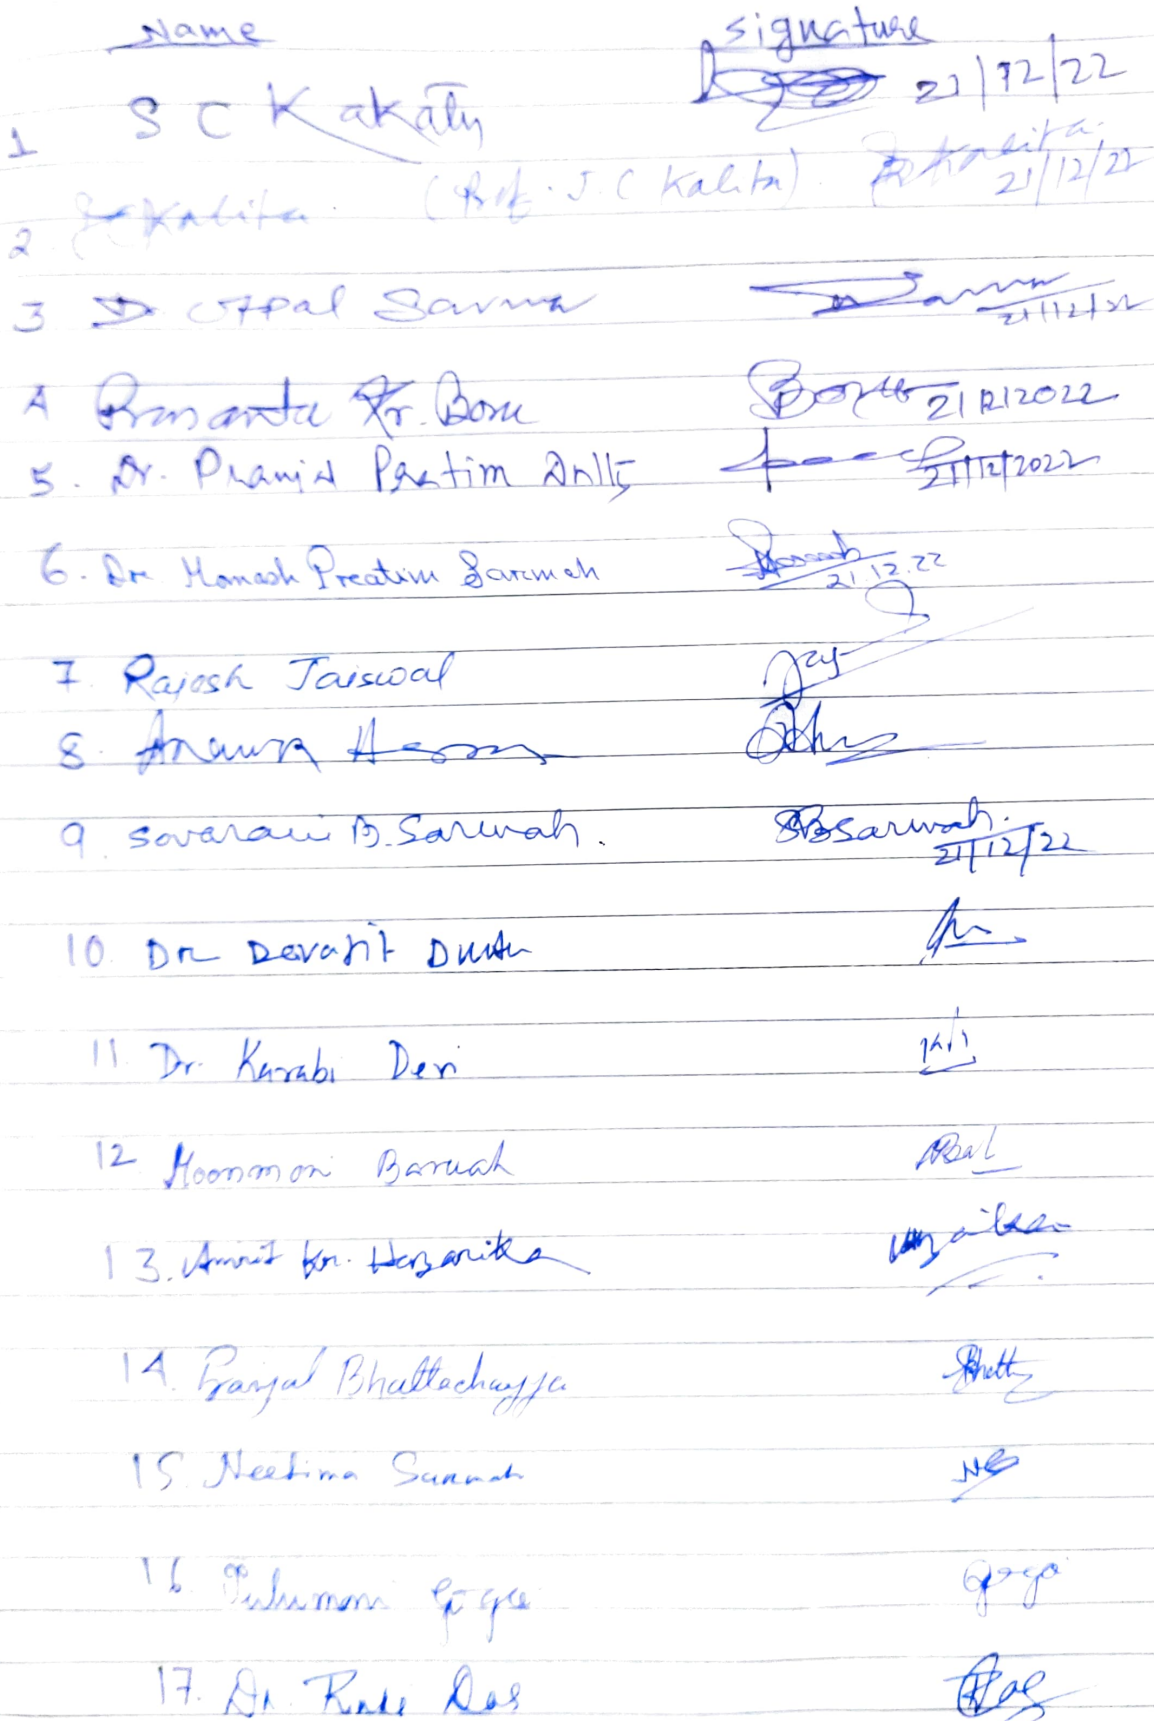 Name signature
1 S C Kakaty 21/12/22
2 Kalita (Prof. J. C Kalita). Kalita 21/12/22
3 D Utpal Sarma Sarma 21/12/22
4 Prasanta Kr. Bora Bora 21/12/2022
5. Dr. Pranjal Pratim 21/12/2022
6. Dr Manash Preatim Sarmah 21.12.22
7. Rajesh Jaiswal
8.
9. sovarani B. Sarmah. SBSarmah. 21/12/22
10. Dr Devajit Dutta
11. Dr. Karabi Devi
12 Moonmoni Baruah
13. Amrit Kr. Hazarika
14. Pranjal Bhattacharyya Bhatt
15. Neetima Sarmah NS
16 Pulumoni Gogoi Gogoi
17. Dr. Das Das